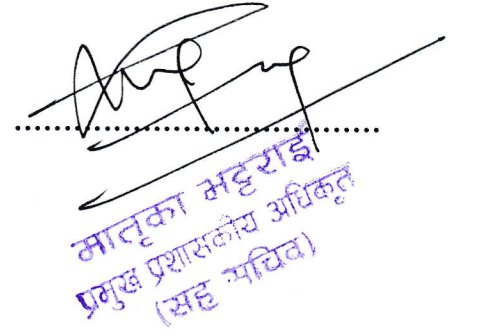 मातृका भट्टराई
प्रमुख प्रशासकीय अधिकृत
(सह सचिव)